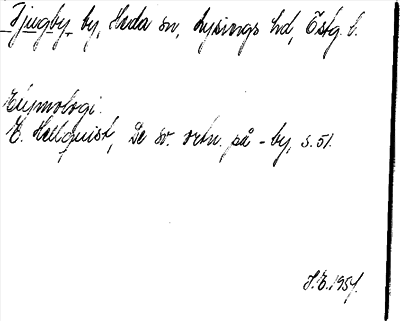 Djugby by, Heda sn, Lysings hd, Östg. l.
Etymologi.
E. Hellquist, De sv. ortn. på -by, s. 51.
H.E. 1954.